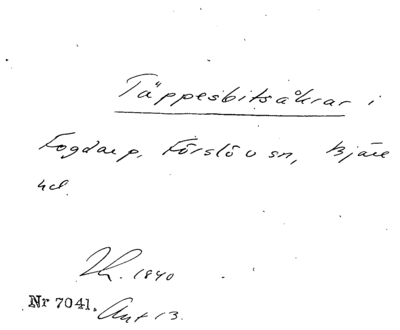 Täppesbitsåkrar i
Fogdarp, Förslöv sn, Bjäre
hd.
1840
Nr 7041. Akt 13.